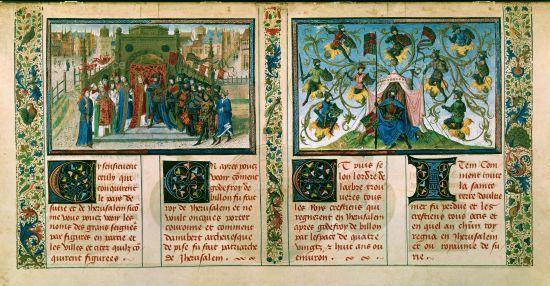 Cy sensieuvent
ceulx qui
conquirent
le pays de
surie et de Jherusalem sico
me vous pouez veoir les
noms des grans seignes
par figures en partie et
les villes et citez quilz co
quirent figurees
En apres pouez
veoir coment
godefroy de
billon fu fait
roy de Jherusalem et ne
voult oncques porter
couronne et comment
daimbert archevesque
de pise fu fait patriarche
de Jherusalem.
Et puis se
lon lordre de
larbre trou
verez tous
les Roys crestiens qui
regnerent en Jherusalem
apres godefroy de billon
par lespace de quatre
vingtz & huit ans ou
environ.
Item Com
ment toute
la sainte
terre doultre
mer fu perdue et les
crestiens tous occis et
en quel an chun roy
regna en Jherusalem
et ou royaume de su
rie.